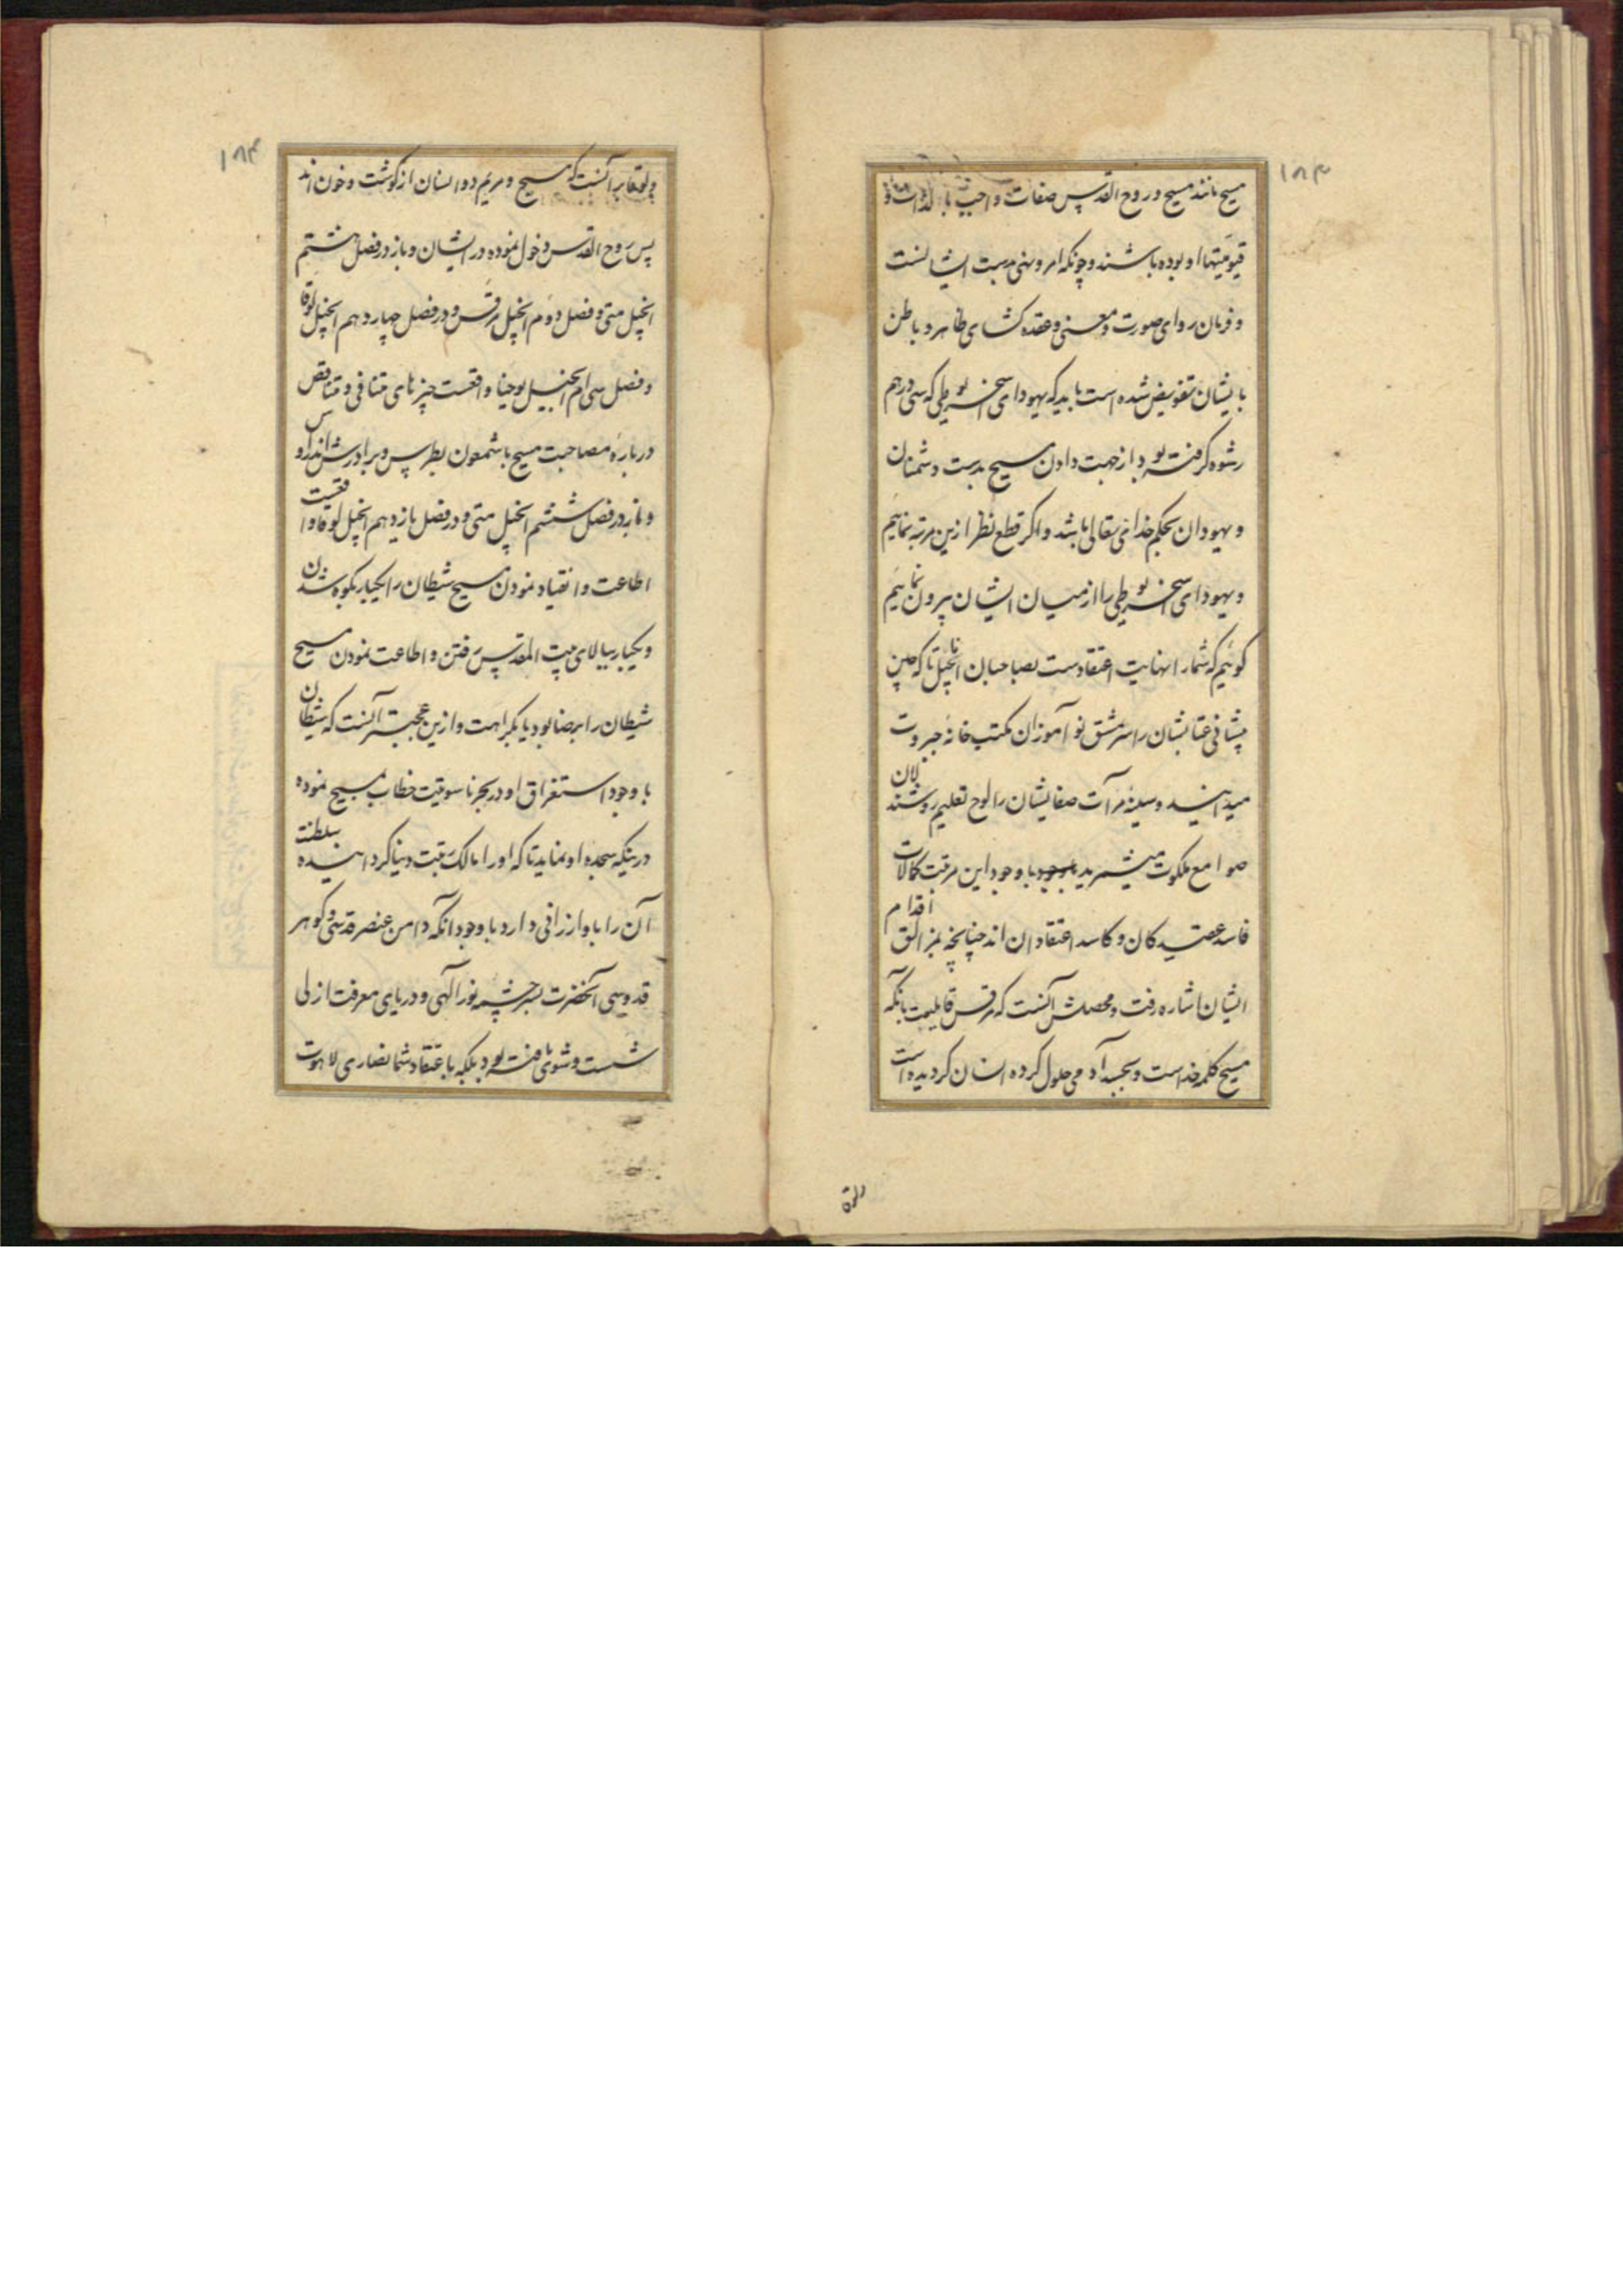 ۱۸۳
مسیح مانند مسیح و روح القدس صفات واجب بالذات و
قیومیتها او بوده باشند و چونکه امر و نهی بدست ایشانست
و فرمان روای صورت و معنی و عقده کشای ظاهر و باطن
بایشان تفویض شده است باید که یهودای سخریوطی که سی درهم
رشوه کرفته بود از جهت دادن مسیح بدست دشمنان
و یهودان بحکم خدای تعالی باشد و اکر قطع نظر ازین مرتبه نمائیم
و یهودای سخریوطی را از میان ایشان بیرون نمائیم
کوئیم که شما را نهایت اعتقادست بصاحبان اناجیل تا که چین
پیشانی عتابشان را سرمشق نو آموزان مکتب خانه جبروت
میدانید و سینه مرآت صفایشان را لوح تعلیم روشندلان
صوامع ملکوت میشمرید باوجود این مرتبت کمالات
فاسد عقیدکان و کاسد اعتقادان اند چنانچه بمزالق اقدام
ایشان اشاره رفت و محصلش آنست که مرقس قایلست بانکه
مسیح کلمه خداست و بجسد آدمی حلول کرده انسان کردیده است
۱۸۴
و لوقا برآنست که مسیح و مریم دو انسان از کوشت و خون اند
پس روح القدس دخول نموده در ایشان و باز در فصل هشتم
انجیل متی و فصل دوم انجیل مرقس و در فصل چهاردهم انجیل لوقا
و فصل سی ام انجیل یوحنا واقعست چیزهای متنافی و متناقض
درباره مصاحبت مسیح با شمعون بطرس و برادرش اندراوس
و نیز در فصل ششم انجیل متی و در فصل یازدهم انجیل لوقا واقعست
اطاعت و انقیاد نمودن مسیح شیطان را یکبار بکوه شدن
و یکبار ببالای بیت المقدس رفتن و اطاعت نمودن مسیح
شیطان را برضا بود یا بکراهت و ازین عجبتر آنست که شیطان
با وجود استغراق او در بحر ناسوتیت خطاب بمسیح نموده
درینکه سجده او نماید تا که او را مالک رقبت دنیا کردانیده سلطنت
آن را باو ارزانی دارد باوجود آنکه دامن عنصر قدسی و کوهر
قدوسی آنحضرت بسرچشمه نور آلهی و دریای معرفت ازلی
شست و شوی یافته بود بلکه باعتقاد شما نصاری لاهوت